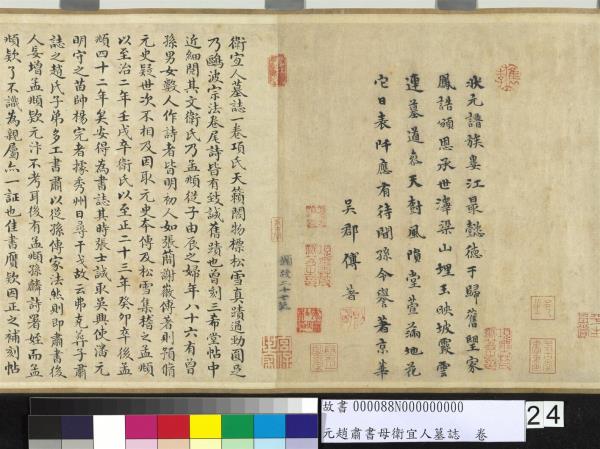 狀元譜族婁江最懿德于歸聖家
鳳誥頒恩承世澤梁山埋玉映坡霞雲
連墓道愁天對風隕堂萱滿地花
它日表阡應有待聞孫令譽著京華
吳郡傅著
衛宜人墓誌一卷項氏天籟閣物標松雪真蹟迺動圓足
乃鷗波宗法卷尾詩皆有致誠舊蹟也曾刻三希堂帖中
近細閱其文衛氏乃孟頫從子由辰之婦年八十六有曾
孫男女數人作詩者皆明初人如張簡謝徽傅著則預脩
元史疑世次不相及因取元史本傳及松雪集稽之孟頫
以至治二年壬戌卒衛氏以至正二十三年癸卯卒後孟
頫四十二年矣安得為書誌其時張士誠取吳興使潘元
明守之苗帥楊完者據秀州日尋干戈故云弗克葬子肅
誌之趙氏子弟多工書肅以從孫傳家法然則即肅書後
人妄增孟頫款元汴不考耳後有孟頫孫麟詩署姪而孟
頫款了不識為親屬亦一証也佳書贗欵因正之補刻帖
故書 000088N000000000
元趙肅書母衛宜人墓誌 卷
24